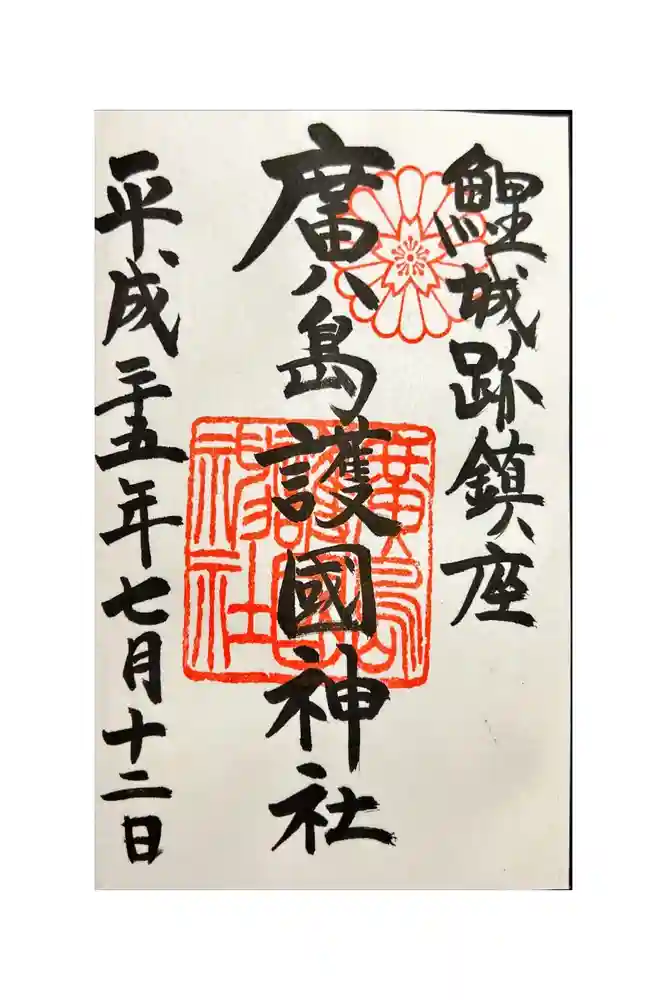 鯉城跡鎮座
廣島護國神社
平成二十五年七月十二日
廣島護國神社